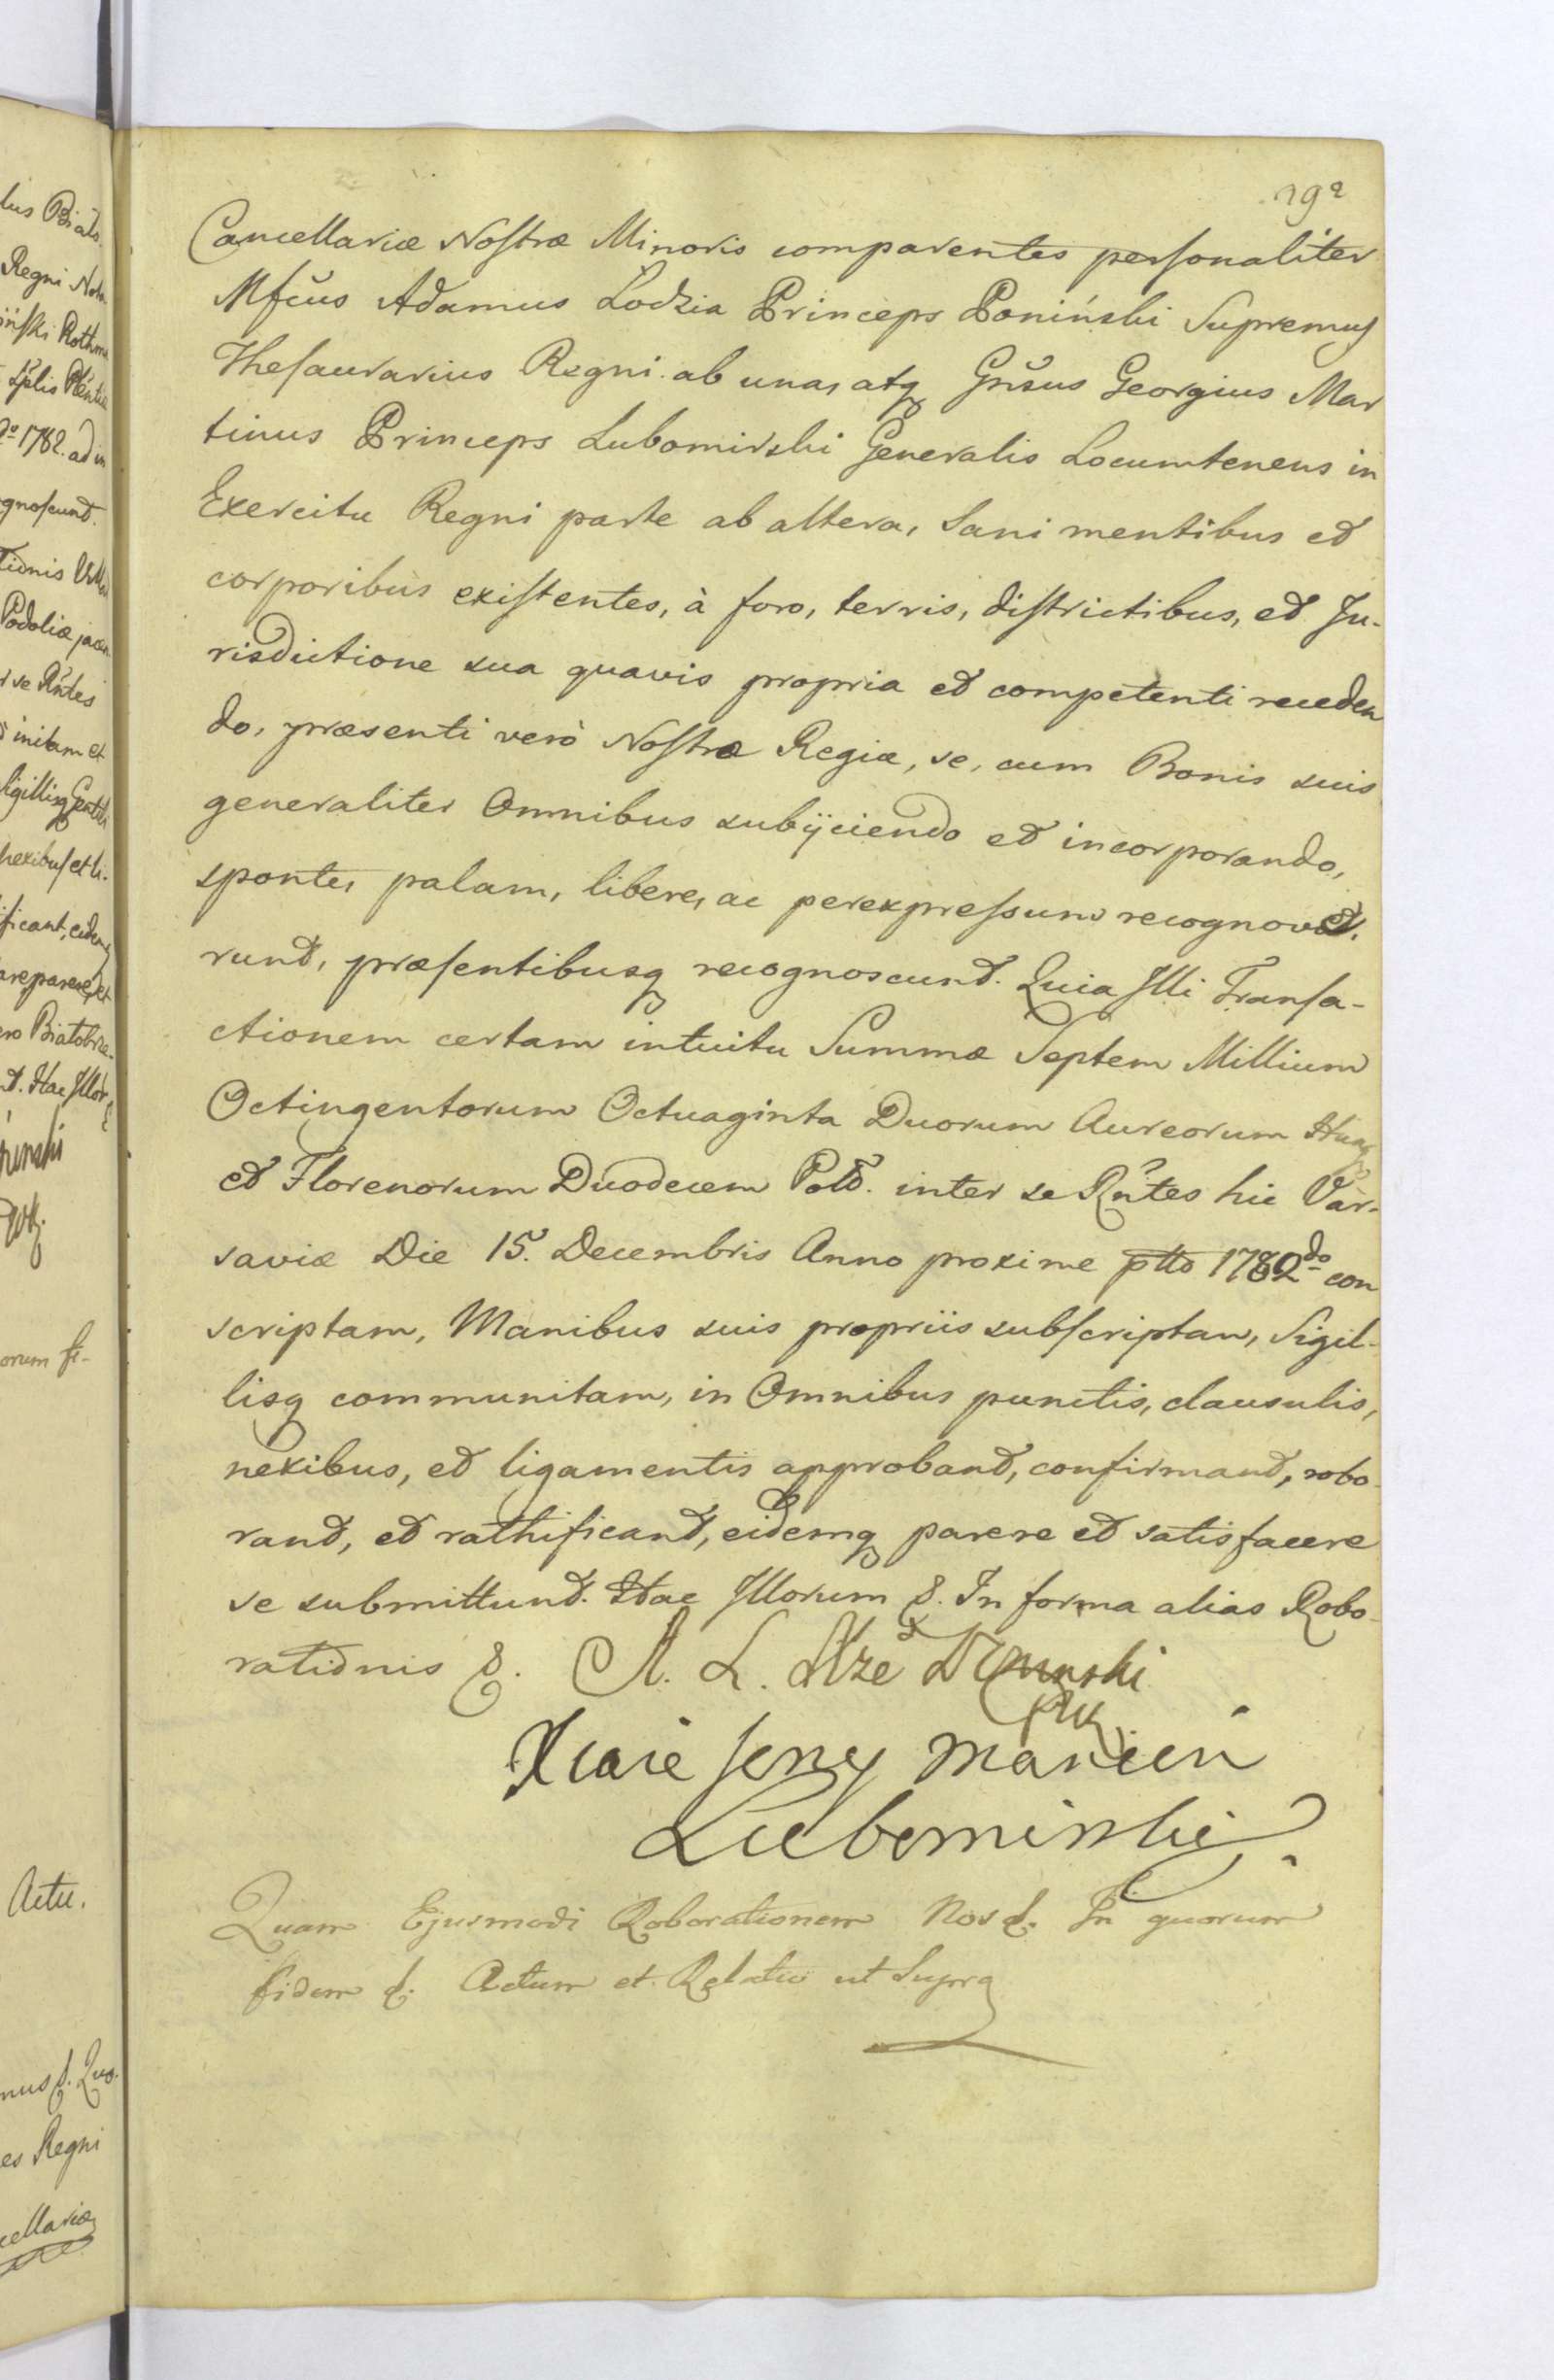 192
Cancellariæ Nostræ Minoris comparentes personaliter
Mfcus Adamus Lodzia Princeps Poniński Supremus
Thesaurarius Regni ab una, atq Gnsus Georgius Mar
tinus Princeps Lubomirski Generalis Locumtenens in
Exercitu Regni parte ab altera, Sani mentibus et
corporibus existentes, à foro, terris, districtibus, et Ju-
risdictione sua quavis propria et competenti receden
do, præsenti verò Nostræ Regiæ, se, cum Bonis suis
generaliter Omnibus subijciendo et incorporando,
sponte, palam, libere, ac per expressum recognove.
runt, præsentibusq recognoscunt. Quia Illi Transa-
ctionem certam intuitu Summæ Septem Millium
Octingentorum Octuaginta Duorum Aureorum Hung
et Florenorum Duodecem Pold. inter se Rntes hic Var-
saviæ Die 15. Decembris Anno proxime ptto 1782do con
scriptam, Manibus suis propriis subscriptam, Sigil-
lisq communitam, in Omnibus punctis, clausulis,
nexibus, et ligamentis approband, confirmand, robo-
rand, et rathificand, eidemq parere et satisfacere
se submittund. Hac Illorum &. In forma alias Robo-
rationis &. A. L. Xże
Xiąże Jerzy Marcin
Lubomirski
Quam Ejusmodi Roborationem Nos &. In quorum
fidem &. Actum et Relatio ut Supra
lus Biało.
Regni Nota
iński Rothm
1782. ad in
gnoscund.
Podoliæ jacen
r se Rntes
initam et
nexibus et li-
ficant, eidemq
ro Białobrze-
t. Hac Illor
orum fi-
Actu.
nus &. Quo.
es Regni
cellariæ